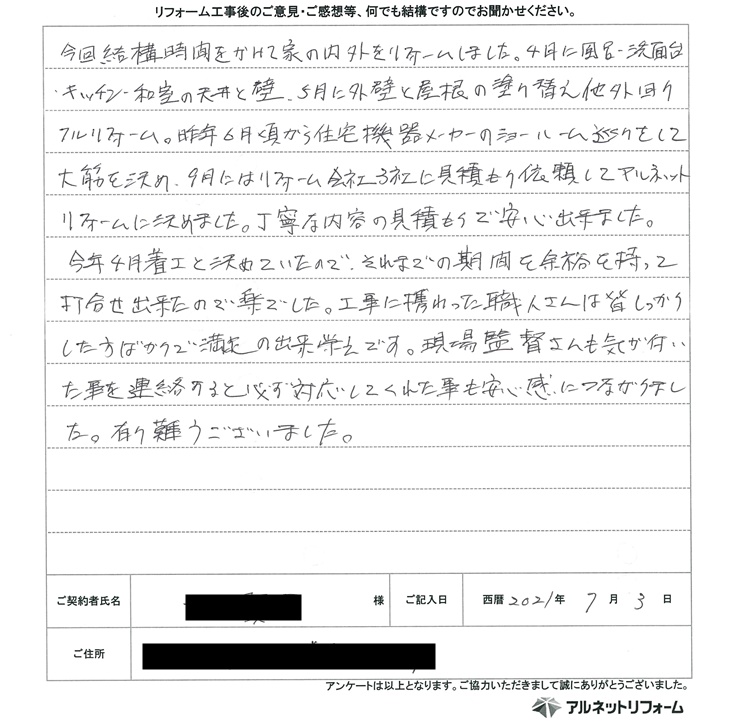 リフォーム工事後のご意見・ご感想等、何でも結構ですのでお聞かせください。
今回結構時間をかけて家の内外をリフォームしました。4月に風呂・洗面台
・キッチン・和室の天井と壁、5月に外壁と屋根の塗り替え他外回り
フルリフォーム。昨年6月頃から住宅機器メーカーのショールーム巡りをして
大筋を決め、9月にはリフォーム会社3社に見積もり依頼してアルネット
リフォームに決めました。丁寧な内容の見積もりで安心出来ました。
今年4月着工と決めていたので、それまでの期間を余裕を持って
打合せ出来たので楽でした。工事に携わった職人さんは皆しっかり
した方ばかりで満足の出来栄えです。現場監督さんも気が付い
た事を連絡すると必ず対応してくれた事も安心感につながりまし
た。有り難うございました。
ご契約者氏名 様 ご記入日 西暦 2021年 7月 3日
ご住所
アンケートは以上となります。ご協力いただきまして誠にありがとうございました。
アルネットリフォーム